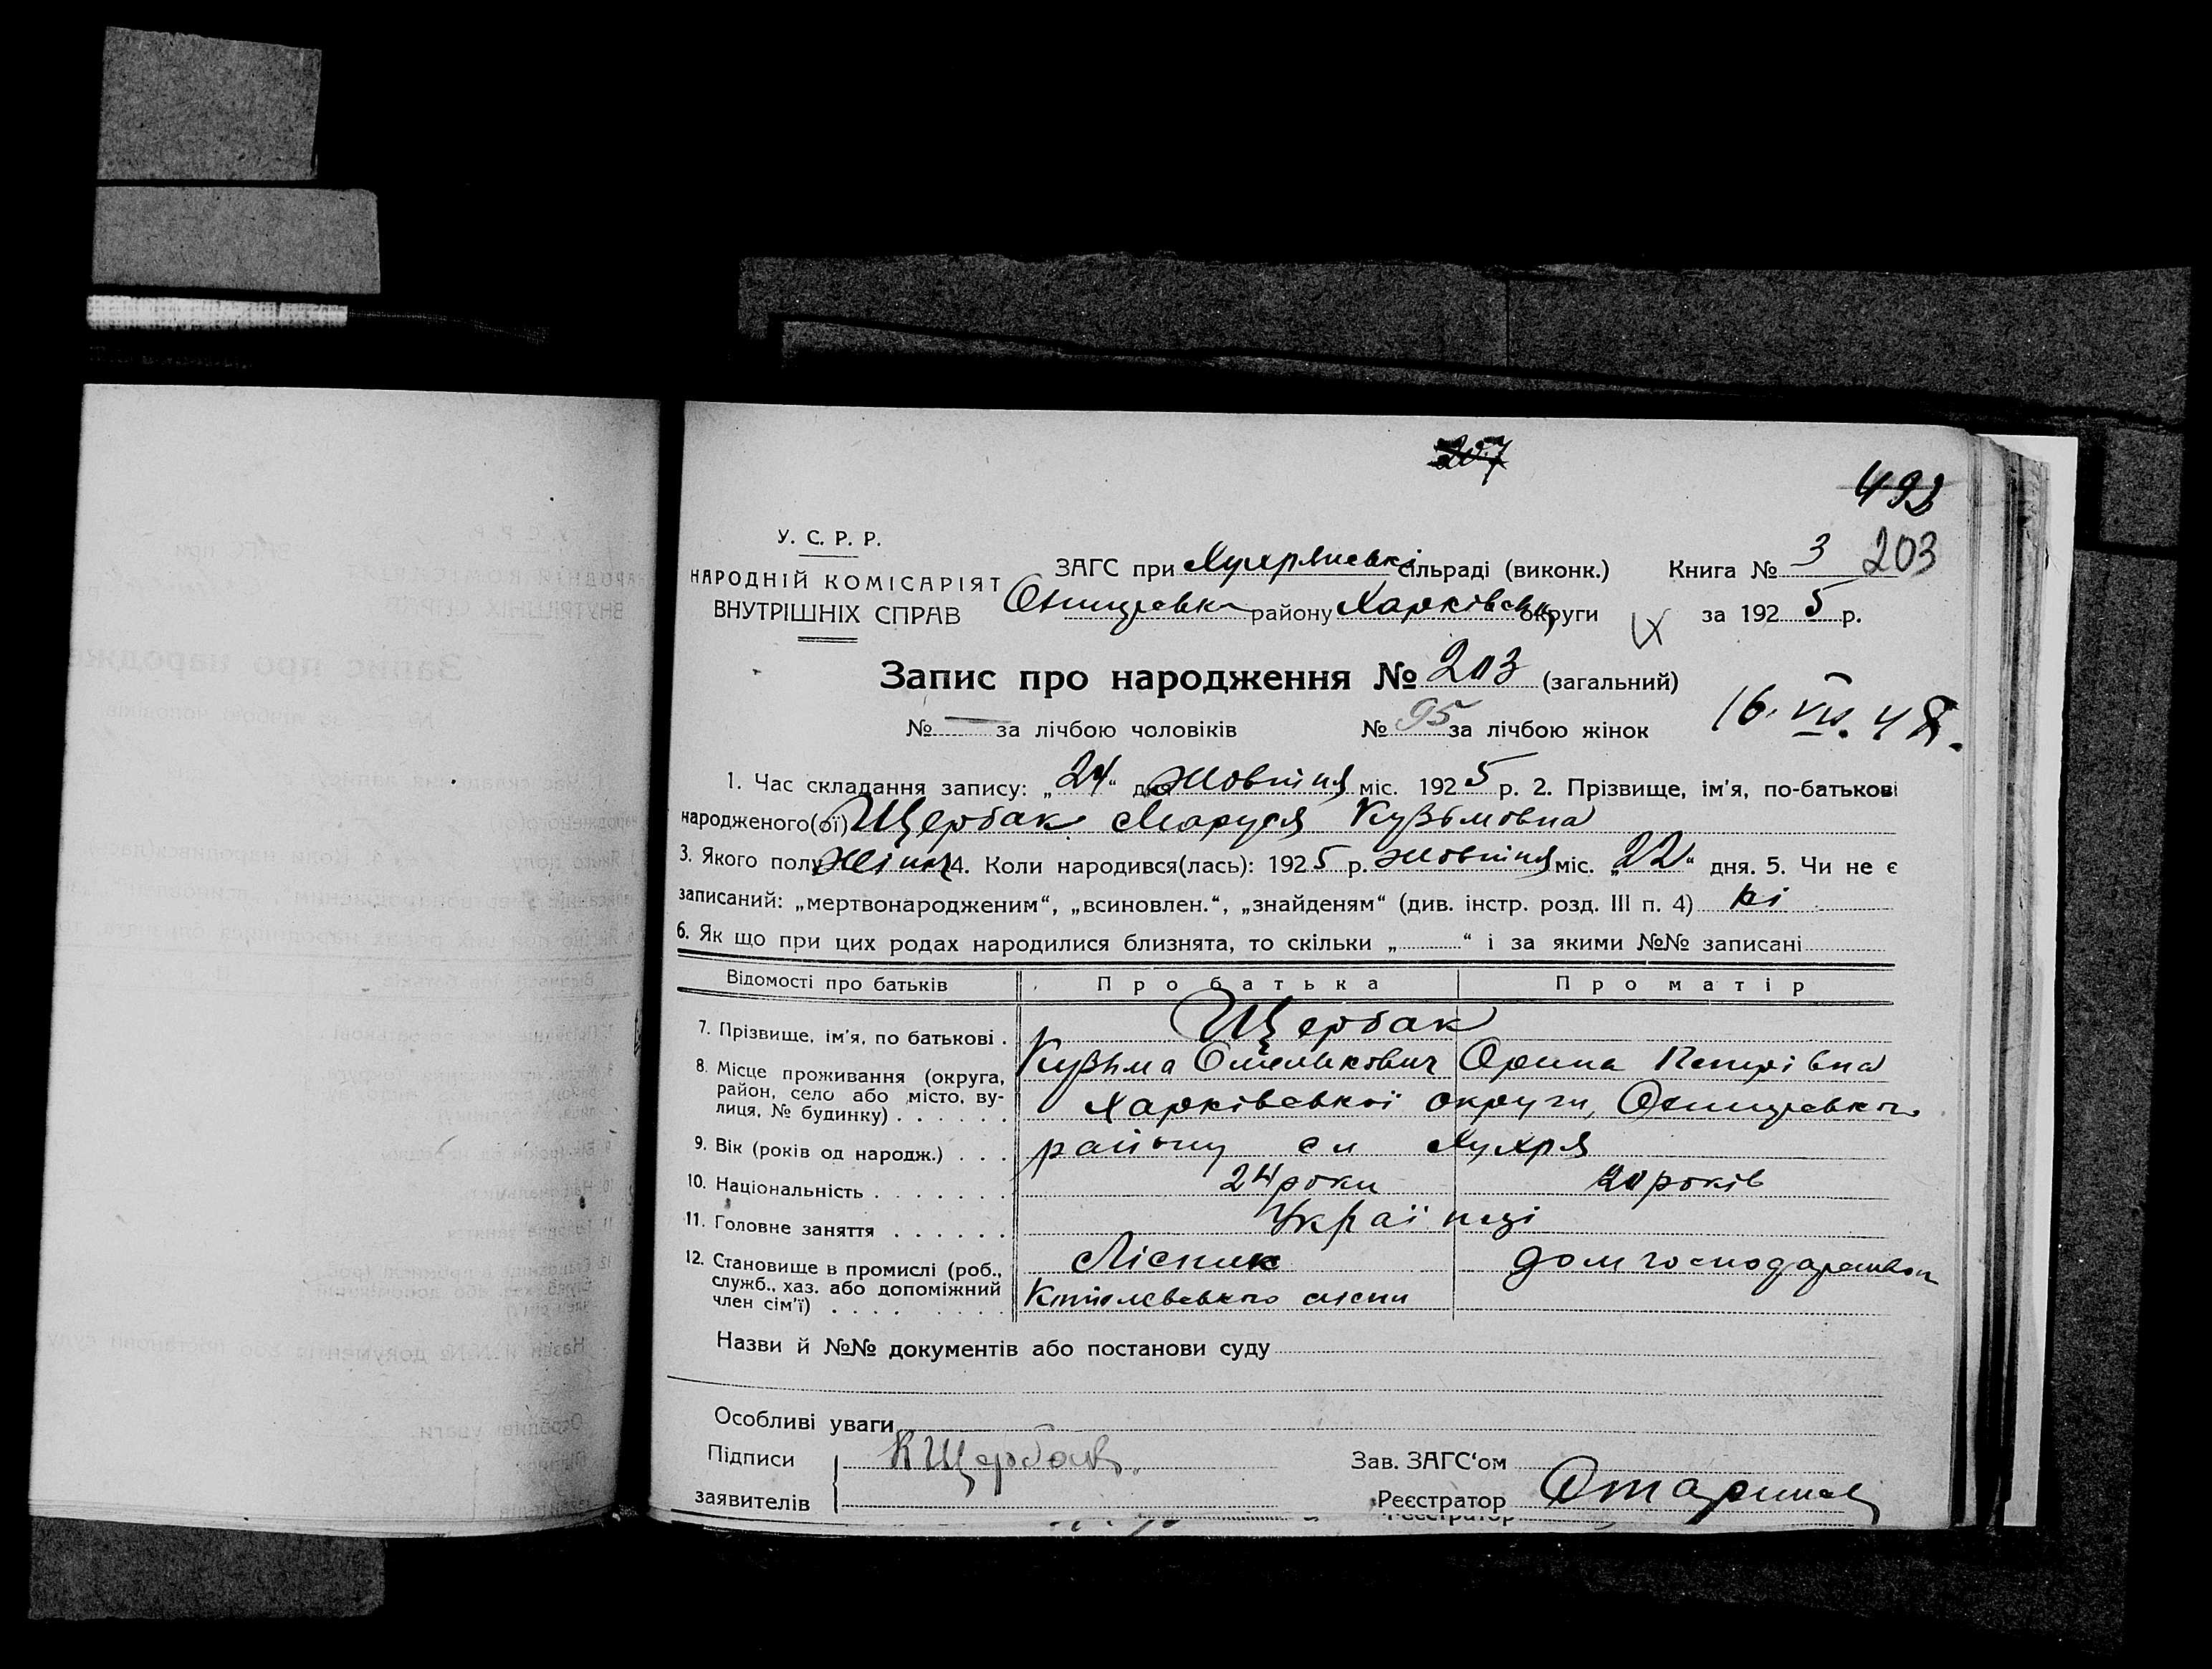 207
492
У. С. Р. Р.
НАРОДНІЙ КОМІСАРІЯТ
ВНУТРІШНІХ СПРАВ
ЗАГС при Хухрянські сільраді (виконк.)
Книга № 3 203
району Харківськ округи
за 192 5 р.
Запис про народження № 203 (загальний)
№ — за лічбою чоловіків № 95 за лічбою жінок
16. VII. 4
1. Час складання запису: „24“ дня жовтня міс. 192 5 р. 2. Прізвище, ім'я, по-батькові
народженого(ої) Щербак Маруся Кузьмовна
3. Якого полу жіноч 4. Коли народився(лась): 192 5 р. жовтня міс. „22“ дня. 5. Чи не є
записаний: „мертвонародженим“, „всиновлен.“, „знайденям“ (див. інстр. розд. III п. 4) ні
6. Як що при цих родах народилися близнята, то скільки „ “ і за якими №№ записані
Відомості про батьків Про батька Про матір
7. Прізвище, ім'я, по батькові . Щербак
Кузьма Омелькович Орина Петрівна
8. Місце проживання (округа,
район, село або місто, ву-
лиця, № будинку) . . . . . .
Харківської округи,
району сл Хухря
9. Вік (років од народж.) . . .
24 роки 20 років
10. Національність . . . . . . .
Українці
11. Головне заняття . . . . . .
Лісник дом господарством
12. Становище в промислі (роб.,
служб., хаз. або допоміжний
член сім'ї) . . . . . . . . .
Назви й №№ документів або постанови суду
Особливі уваги
Підписи К Щербак
заявителів
Зав. ЗАГС'ом
Реєстратор
Реєстратор